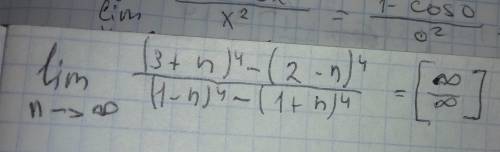 lim x² = 1 - cos0 / 0²
lim n→∞ ((3 + n)⁴ - (2 - n)⁴) / ((1 - n)⁴ - (1 + n)⁴) = [∞/∞]